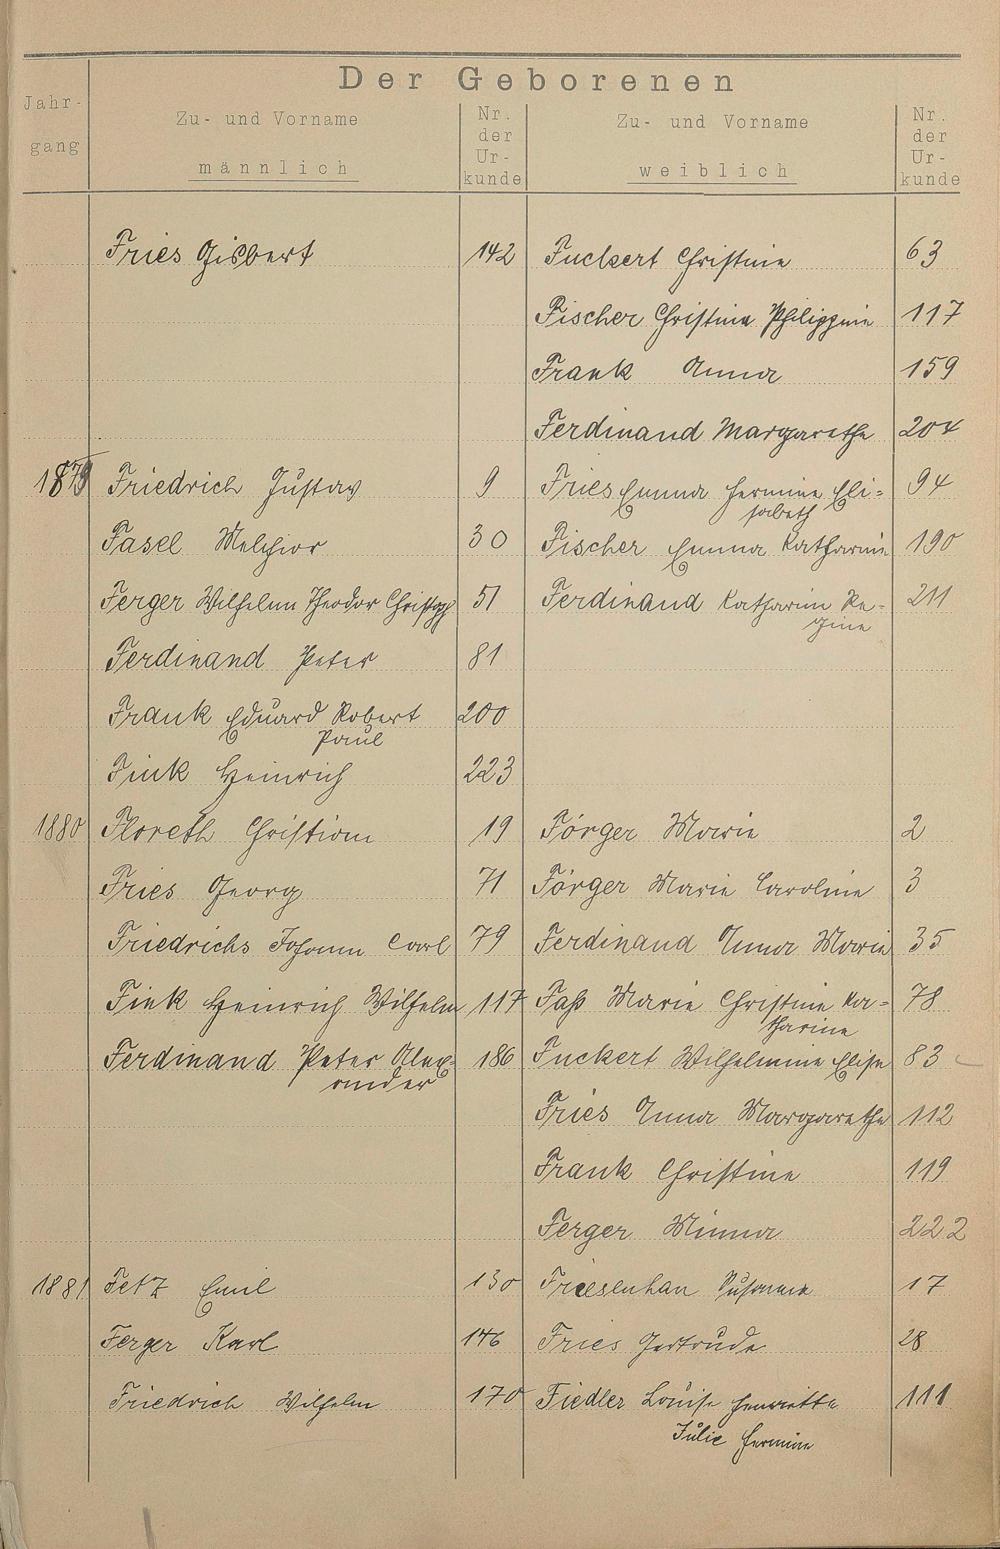 Der Geborenen
Jahr-
gang
Zu- und Vorname
männlich
Nr.
der
Ur-
kunde
Zu- und Vorname
weiblich
Nr.
der
Ur-
kunde
Fries Gisbert 142 Fuckert Christine 63
Fischer Christina Philippine 117
Frank Anna 159
Ferdinand Margarethe 204
1879 Friedrich Gustav 9 Fries Emma Hermine Eli=
sabeth 94
Fasel Melchior 30 Fischer Emma Katharine 190
Ferger Wilhelm Theodor Christoph 51 Ferdinand Katharine Re=
gine 211
Ferdinand Peter 81
Frank Eduard Robert 200
Paul
Fink Heinrich 223
1880 Floreth Christian 19 Förger Marie 2
Fries Georg 71 Förger Marie Caroline 3
Friedrichs Johann Carl 79 Ferdinand Anna Marie 35
Fink Heinrich Wilhelm 117 Faß Marie Christine Ka=
tharine 78
Ferdinand Peter Alex=
ander 186 Fuckert Wilhelmine Elise 83
Fries Anna Margarethe 112
Frank Christine 119
Ferger Minna 222
1881 Fetz Emil 130 Friesenhan Susanna 17
Ferger Karl 146 Fries Gertrude 28
Friedrich Wilhelm 170 Fiedler Louise Henriette 111
Julie Hermine